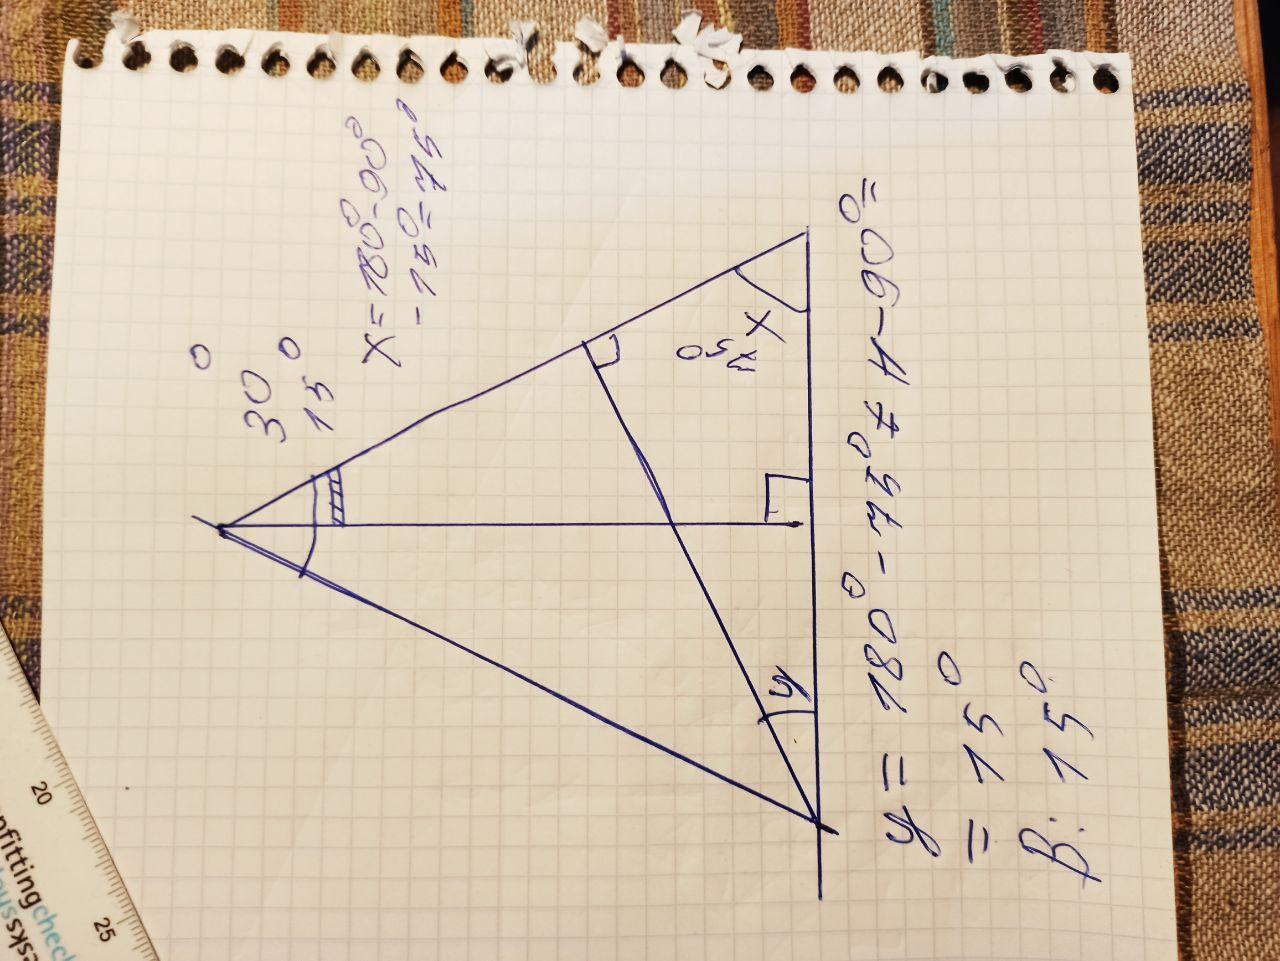 30°
15°
x = 180° - 90°
- 15° = 75°
75°
x
y
y = 180° - 75° - 90° =
= 15°
В: 15°
20
25
nfitting
check